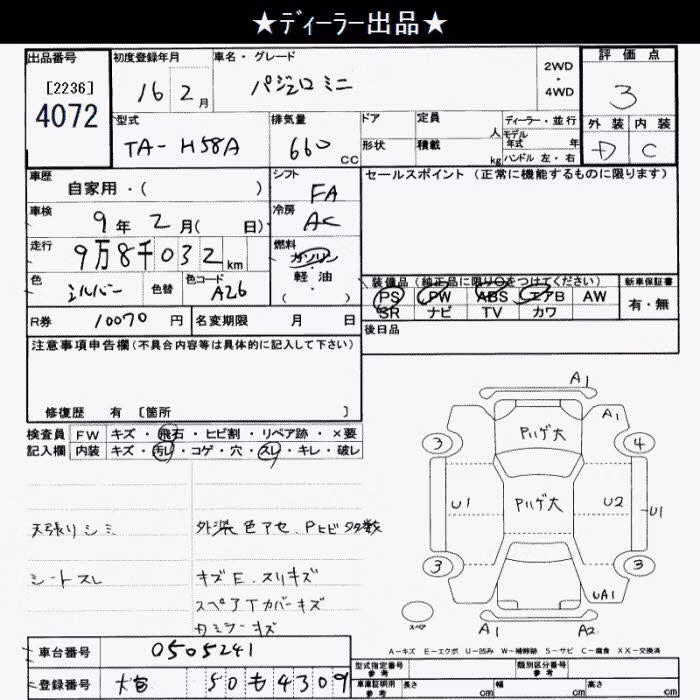 ★ディーラー出品★
出品番号
[2236]
4072
初度登録年月
16 2 月
車名・グレード
パジェロミニ
2WD
・
4WD
評価点
3
外装 内装
D C
型式
TA-H58A
排気量
660 cc
ドア
形状
定員 人
積載 kg
ディーラー・並行
モデル年式 年
ハンドル 左・右
車歴
自家用・( )
シフト
FA
セールスポイント (正常に機能するものに限ります)
車検
9年 2月( 日)
冷房
AC
走行
9万8千032 km
燃料
ガソリン
・
軽油
( )
色
シルバー
色替
色コード
A26
装備品 (純正品に限り○をつけてください)
PS PW ABS エアB AW
SR ナビ TV カワ
新車保証書
有・無
R券 10070 円
名変期限 月 日
後日品
注意事項申告欄(不具合内容等は具体的に記入して下さい)
修復歴 有 [箇所 ]
検査員 FW キズ・飛石・ヒビ割・リペア跡・×要
記入欄 内装 キズ・汚レ・コゲ・穴・スレ・キレ・破レ
天張りシミ
シートスレ
外装色アセ Pヒビ多数
キズE.スリキズ
スペアTカバーキズ
カミラーキズ
A1
A1
3
Pハゲ大
4
U1
Pハゲ大
U2
U1
3
3
UA1
スペア
A1
A2
A-キズ E-エクボ U-凹み W-補修跡 S-サビ C-腐食 XX-交換済
車台番号 0505241
登録番号 大宮 50 も 4309
型式指定番号
参考
類別区分番号
参考
車庫証明用
参考
長さ cm
幅 cm
高さ cm